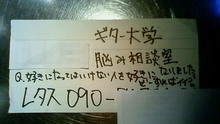 ギター大学
悩み相談望
Q.好きになってはいけない人を好きになりました
どーすればイイ?
レタス 090-